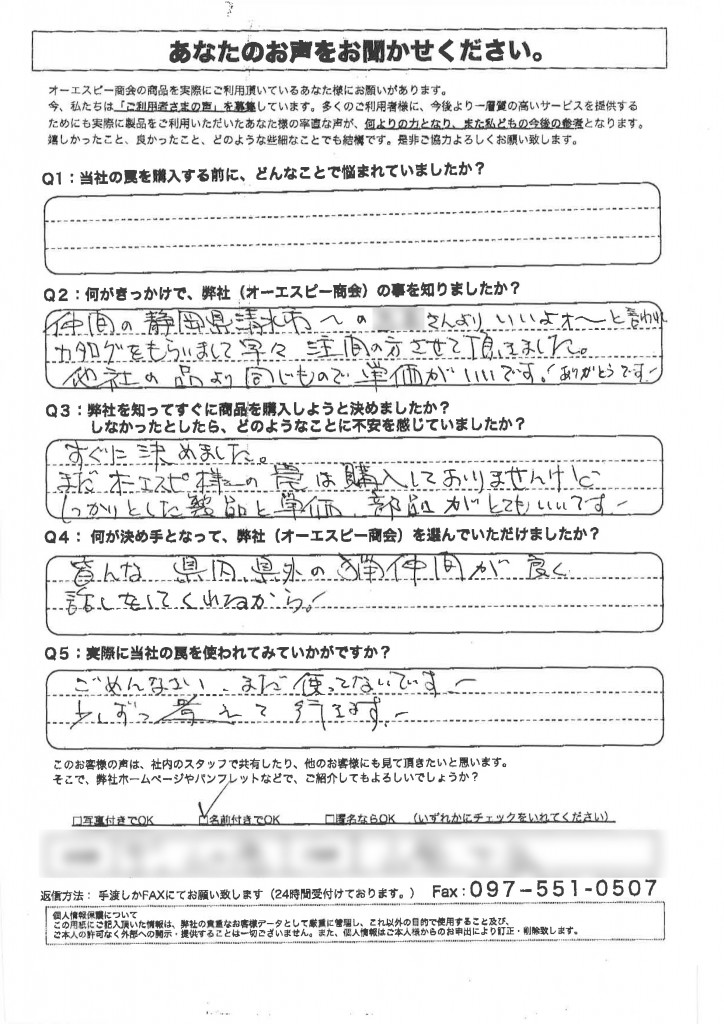 あなたのお声をお聞かせください。
オーエスピー商会の商品を実際にご利用頂いているあなた様にお願いがあります。
今、私たちは「ご利用者さまの声」を募集しています。多くのご利用者様に、今後より一層質の高いサービスを提供する
ためにも実際に製品をご利用いただいたあなた様の率直な声が、何よりの力となり、また私どもの今後の参考となります。
嬉しかったこと、良かったこと、どのような些細なことでも結構です。是非ご協力よろしくお願い致します。
Q1：当社の罠を購入する前に、どんなことで悩まれていましたか？
Q2：何がきっかけで、弊社（オーエスピー商会）の事を知りましたか？
仲間の静岡県清水市への さんよりいいよオ〜と言われ
カタログをもらいまして早々注問の方させて頂きました。
他社の品より同じもので単価がいいです！ありがとうです！
Q3：弊社を知ってすぐに商品を購入しようと決めましたか？
しなかったとしたら、どのようなことに不安を感じていましたか？
すぐに決めました。
まだオーエスピ様の罠は購入しておりませんけど
しっかりとした製品と単価、部品がとてもいいです
Q4： 何が決め手となって、弊社（オーエスピー商会）を選んでいただけましたか？
皆んな 県内、県外の猟仲間が良く
話しをしてくれるから！
Q5：実際に当社の罠を使われてみていかがですか？
ごめんなさい、まだ使ってないです
少しずつ考えて行きます
このお客様の声は、社内のスタッフで共有したり、他のお客様にも見て頂きたいと思います。
そこで、弊社ホームページやパンフレットなどで、ご紹介してもよろしいでしょうか？
□写真付きでOK □名前付きでOK □匿名ならOK （いずれかにチェックをいれてください）
返信方法： 手渡しかFAXにてお願い致します（24時間受付けております。） Fax：097-551-0507
個人情報保護について
この用紙にご記入頂いた情報は、弊社の貴重なお客様データとして厳重に管理し、これ以外の目的で使用すること及び、
ご本人の許可なく外部への開示・提供することは一切ございません。また、個人情報はご本人様からのお申出により訂正・削除致します。